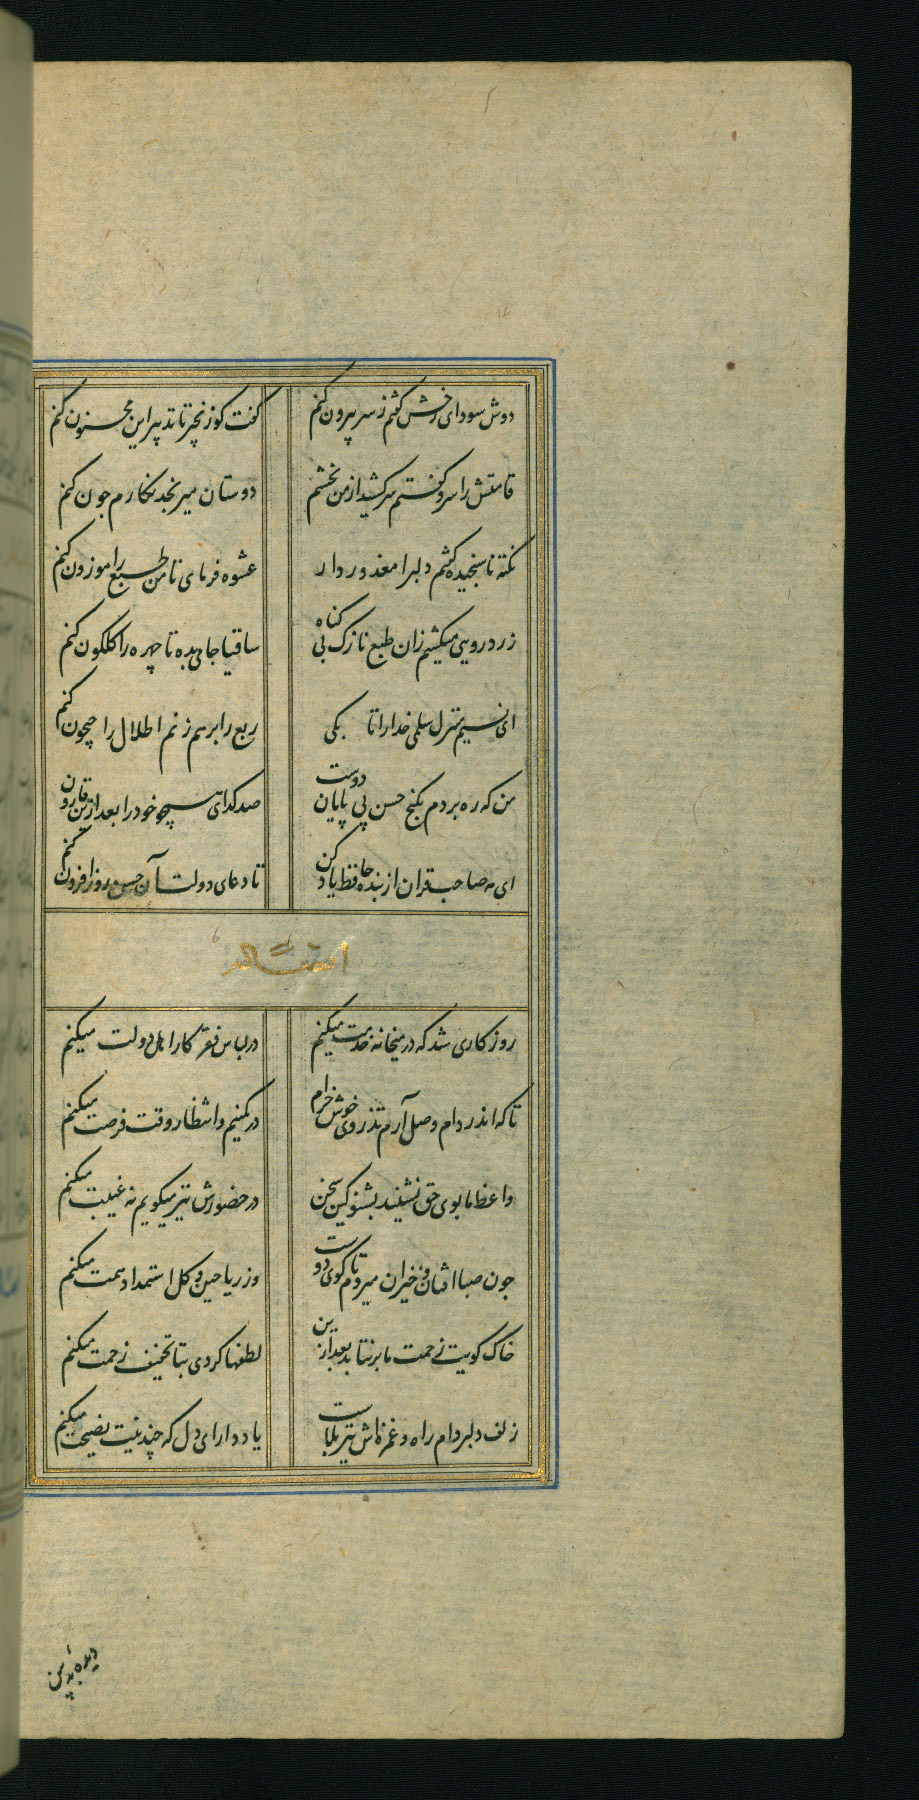 دوش سودای رخش گفتم ز سر بیرون کنم گفت کو زنجیر تا تدبیر این مجنون کنم
قامتش را سرو گفتم سر کشید از من بخشم دوستان میرنجد نکارم جون کنم
نکته ناسنجیده گفتم دلبرا معذور دار عشوه فرمای تا من طبع را موزون کنم
زرد رویی میکشم زان طبع نازک بی کناه ساقیا جامی بده تا چهره را کلکون کنم
ای نسیم منزل سلمی خدا را تا بکی ربع را برهم زنم اطلال را جیحون کنم
من که ره بردم بکنج حسن بی پایان دوست صد کدای همچو خود را بعد ازین قارون کنم
ای مه صاحب قران از بنده حافظ یاد کن تا دعای دولت آن حسن روز افزون کنم
روزکاری شد که در میخانه خدمت میکنم در لباس فقر کار اهل دولت میکنم
تا که اندر دام وصل آرم تذروی خوش خرام در کمینم و انتظار وقت فرصت میکنم
واعظ ما بوی حق نشنید بشنو کین سخن در حضورش نیز میکویم نه غیبت میکنم
جون صبا افتان و خیزان میروم تا کوی دوست وز ریاحین و کل استمداد همت میکنم
خاک کویت زحمت ما برنتابد بعد ازین لطفها کردی بتا تخفیف زحمت میکنم
زلف دلبر دام راه و غمزه اش تیر بلاست یاد دار ای دل که چندینت نصیحت میکنم
دیده بد بین